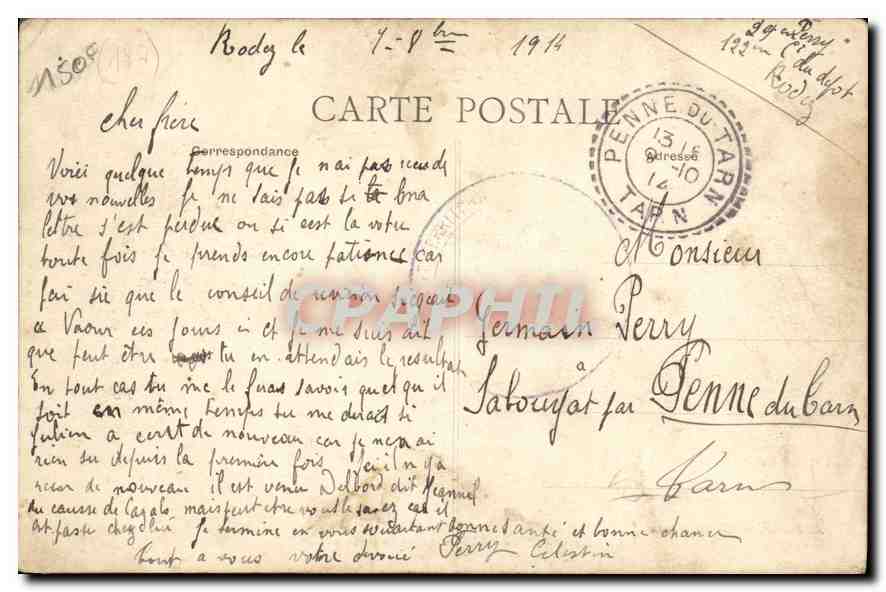 Rodez le 7-8bre 1914
2gr Perry
122em Cie du depot
Rodez
1150F
CARTE POSTALE
Correspondance
Adresse
PENNE-DU-TARN
13
8-10
14
TARN
Cher frère
Voici quelque temps que je n'ai pas reçu de
vos nouvelles je ne sais pas si la
lettre s'est perdue ou si cest la votre
toute fois je prends encore patience car
jai su que le conseil de revision siegeait
a Vaour ces jours ci et je me suis dit
que peut être tu en attendais le resultat
En tout cas tu me le fras savois quel qu il
soit en même temps tu me diras si
Julien a ecrit de nouveau car je nen ai
rien su depuis la première fois. Ici il n'y a
rien de nouveau il est venu Delbord dit Jeannel
du causse de Cazals mais peut etre vous le savez car il
est passe chez lui Je termine en vous souaitant bonne santé et bonne chance
Tout a vous votre devoué Perry Célestin
Monsieur
Germain Perry
à
Salouyat par Penne du Tarn
Tarn
CPAPHIL